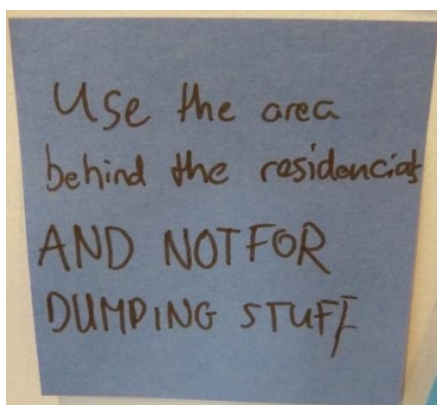 Use the area
behind the residencials
AND NOT FOR
DUMPING STUFF